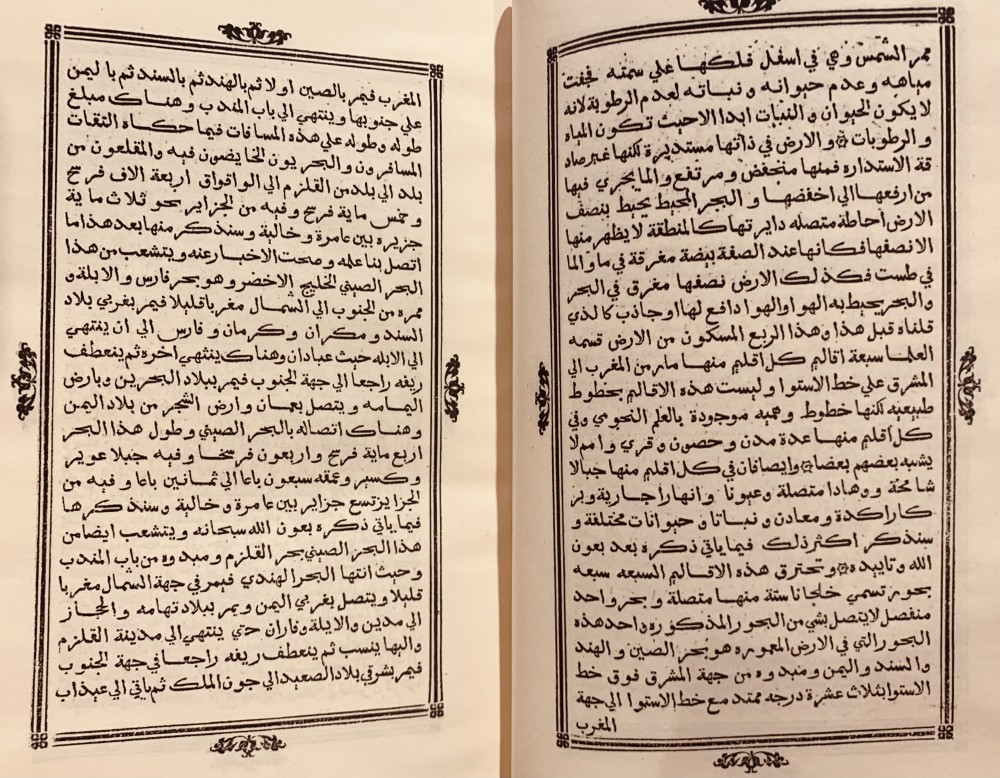 ممر الشمس وهي في اسفل فلكها علي سمته فجفت
مياهه وعدم حيوانه ونباته لعدم الرطوبة لانه
لا يكون الحيوان والنبات ابدا الا حيث تكون المياه
والرطوبات والارض في ذاتها مستديرة لكنها غير صاد
قة الاستداره فمنها منخفض ومرتفع والما يجري فيها
من ارفعها الي اخفضها والبحر المحيط يحيط بنصف
الارض احاطة متصله دايرتها كالمنطقة لا يظهر منها
الا نصفها فكانها عند الصفة بيضة مغرقة في ما والما
في طست فكذلك الارض نصفها مغرق في البحر
والبحر يحيط به الهوا والهوا دافع لها او جاذب كالذي
قلناه قبل هذا وهذا الربع المسكون من الارض قسمه
العلما سبعة اقاليم كل اقليم منها مار من المغرب الي
المشرق علي خط الاستوا وليست هذه الاقاليم بخطوط
طبيعيه لكنها خطوط وهميه موجودة بالعلم النجومي وفي
كل اقليم منها عدة مدن وحصون وقري وامم لا
يشبه بعضهم بعضا وايضا فان في كل اقليم منها جبالا
شامخة ووهادا متصلة وعيونا وانهارا جارية وبر
كا راكدة ومعادن ونباتا وحيوانات مختلفة و
سنذكر اكثر ذلك فيما ياتي ذكره بعد بعون
الله وتاييده وتخترق هذه الاقاليم السبعه سبعه
بحور تسمي خلجانا ستة منها متصلة وبحر واحد
منفصل لا يتصل بشي من البحور المذكوره واحد هذه
البحور التي في الارض المعموره هو بحر الصين والهند
والسند واليمن ومبدوه من جهة المشرق فوق خط
الاستوا بثلاث عشرة درجه ممتد مع خط الاستوا الي جهة
المغرب
المغرب فيمر بالصين اولا ثم بالهند ثم بالسند ثم باليمن
علي جنوبها وينتهي الي باب المندب وهناك مبلغ
طوله وطوله علي هذه المسافات فيما حكاه الثقات
المسافرون والبحريون الخايضون فيه والمقلعون من
بلد الي بلد من القلزم الي الواقواق اربعة الاف فرسخ
وخمس ماية فرسخ وفيه من الجزاير نحو ثلاث ماية
جزيره بين عامرة وخالية وسنذكر منها بعد هذا ما
اتصل بنا علمه وصحت الاخبار عنه ويتشعب من هذا
البحر الصيني الخليج الاخضر وهو بحر فارس والابلة و
ممره من الجنوب الي الشمال مغربا قليلا فيمر بغربي بلاد
السند ومكران وكرمان وفارس الي ان ينتهي
الي الابله حيث عبادان وهناك ينتهي اخره ثم ينعطف
ريفه راجعا الي جهة الجنوب فيمر ببلاد البحرين وبارض
اليمامه ويتصل بعمان وارض الشجر من بلاد اليمن
وهناك اتصاله بالبحر الصيني وطول هذا البحر
اربع ماية فرسخ واربعون فرسخا وفيه جبلا عوير
وكسير وعمقه سبعون باعا الي ثمانين باعا وفيه من
الجزاير تسع جزاير بين عامرة وخالية وسنذكرها
فيما ياتي ذكره بعون الله سبحانه ويتشعب ايضا من
هذا البحر الصيني بحر القلزم ومبدوه من باب المندب
وحيث انتها البحر الهندي فيمر في جهة الشمال مغربا
قليلا ويتصل بغربي اليمن ويمر ببلاد تهامه والحجاز
الي مدين والايلة وفاران حتي ينتهي الي مدينة القلزم
واليها ينسب ثم ينعطف ريفه راجعا في جهة الجنوب
فيمر بشرقي بلاد الصعيد الي جون الملك ثم ياتي الي عيذاب